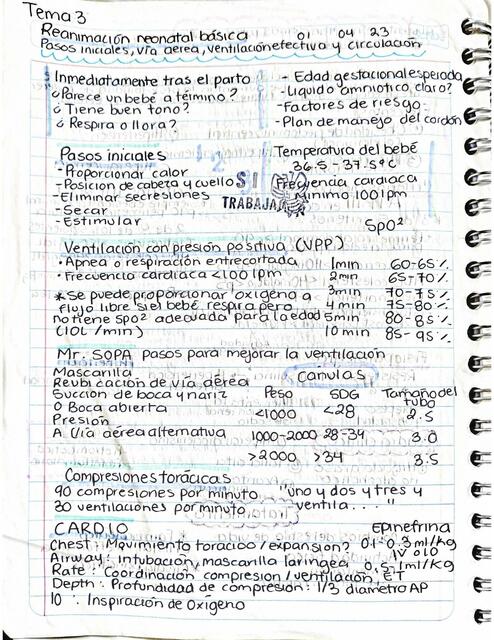 Tema 3
Reanimación neonatal básica 01 04 23
Pasos iniciales, vía aérea, ventilación efectiva y circulación
Inmediatamente tras el parto
¿Parece un bebé a término?
¿Tiene buen tono?
¿Respira o llora?
- Edad gestacional esperada
- Liquido amniotico claro?
- Factores de riesgo
- Plan de manejo del cordón
Pasos iniciales
- Proporcionar calor
- Posicion de cabeza y cuello
- Eliminar secresiones
- Secar
- Estimular
Temperatura del bebé
36.5 - 37.5°C
Frecuencia cardiaca
minimo 100 lpm
SI
TRABAJA
SpO²
Ventilación con presión positiva (VPP)
· Apnea o respiración entrecortada
· Frecuencia cardiaca <100 lpm
* Se puede proporcionar oxigeno a
flujo libre si el bebé respira pero
no tiene spo² adecuada para la edad
(10L/min)
1min 60-65%
2min 65-70%
3min 70-75%
4 min 75-80%
5min 80-85%
10 min 85-95%
Mr. SOPA pasos para mejorar la ventilación
Mascarilla
Reubicación de vía aérea
Succion de boca y nariz
O Boca abierta
Presión
A Vía aérea alternativa
Canulas
Peso SDG Tamaño del tubo
<1000 <28 2.5
1000-2000 28-34 3.0
>2000 >34 3.5
Compresiones torácicas
90 compresiones por minuto "uno y dos y tres y
30 ventilaciones por minuto ventila..."
CARDIO
Chest: Movimiento toracico/expansion?
Airway: Intubación, mascarilla laringea
Rate: Coordinación compresion/ventilación
Depth: Profundidad de compresion: 1/3 diametro AP
10 : Inspiración de Oxigeno
Epinefrina
0.1-0.3ml/Kg
IV o IO
0.5-1ml/Kg
ET